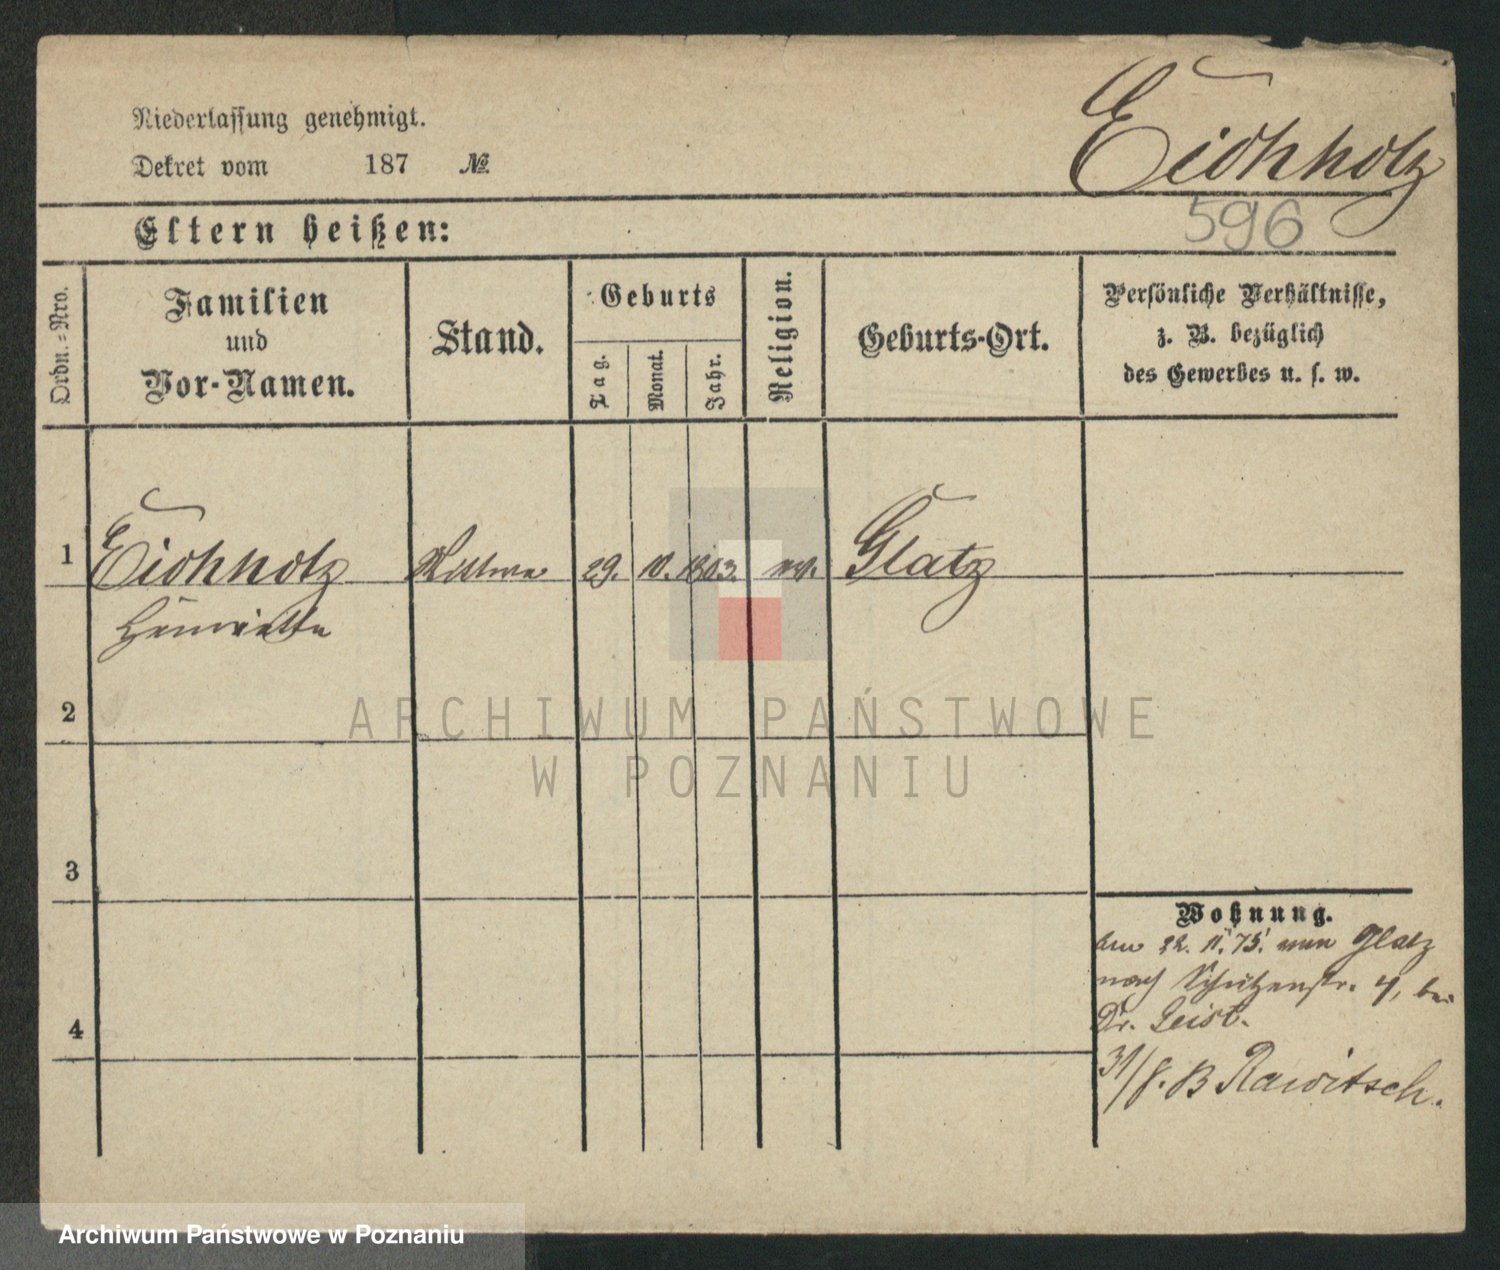 Niederlassung genehmigt.
Dekret vom 187 №
Eichholz
596
Eltern heißen:
Ordn.=Nro.
Familien
und
Vor-Namen.
Stand.
Geburts
Tag.
Monat.
Jahr.
Religion.
Geburts-Ort.
Persönliche Verhältnisse,
z. B. bezüglich
des Gewerbes u. s. w.
1 Eichholz Wittwe 29. 10. 1803. ev. Glatz
Henriette
2
3
4
Wohnung.
22. 11. 75. Glatz
nach Schützenstr. 4, bei
Dr. Geist.
31/8. B Rawitsch.
ARCHIWUM PAŃSTWOWE
W POZNANIU
Archiwum Państwowe w Poznaniu